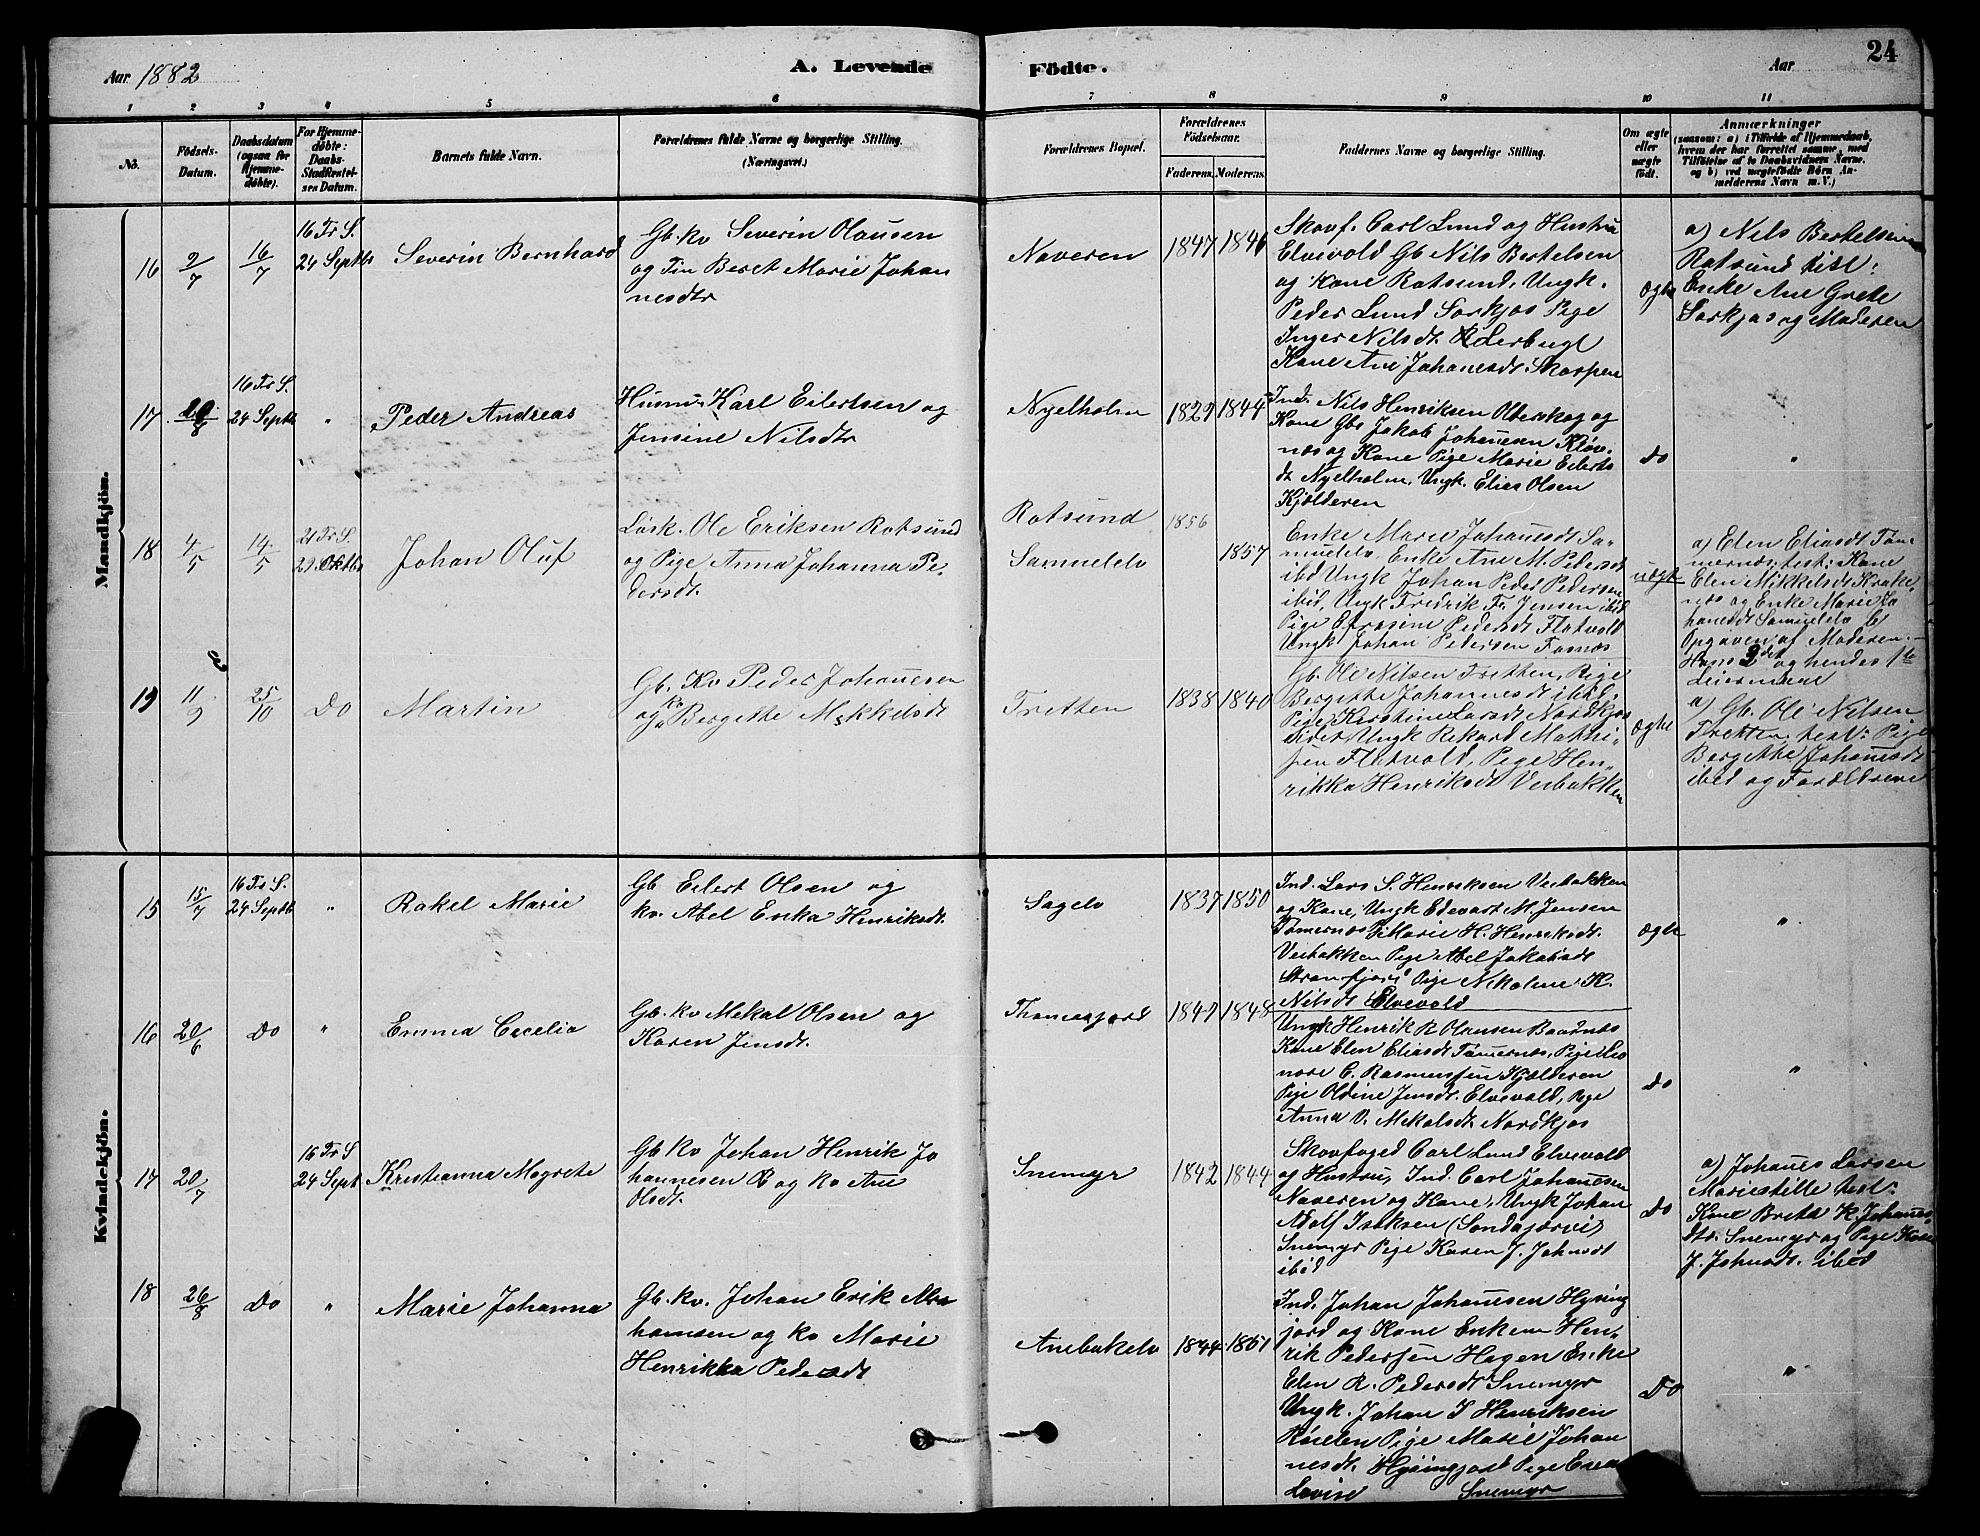 24
Aar 1882
A. Levende Födte.
Aar
1 2 3 4 5 6 7 8 9 10 11
No.
Födsels-
Datum.
Daabsdatum
(ogsaa for
Hjemme-
døbte).
For Hjemme-
døbte:
Daabs-
Stadfæstel-
ses Datum.
Barnets fulde Navn.
Forældrenes fulde Navne og borgerlige Stilling.
(Næringsvei.)
Forældrenes Bopæl.
Forældrenes
Födselsaar.
Faderens. Moderens.
Faddernes Navne og borgerlige Stilling.
Om ægte
eller
uægte
födt.
Anmærkninger
(saasom: a) i Tilfælde af Hjemmedaab,
hvem der har forrettet samme, med
Tilföielse af to Daabsvidners Navne,
og b) ved uægtefödte Börn An-
melderens Navn m. V.)
Mandkjön.
16
2/7
16/7
16 Tr S.
24 Septbr
Severin Bernhard
Gb. kv Severin Olausen
og Beret Marie Johan
nesdtr
Naveren
1847
1846
Skovf. Carl Lund og Hustru
Elvevold Gb Nils Bertelsen
og Kone Rotsund, Ungk.
Peder Lund Sørkjos Pige
Inger Nilsdt.
Kone Ane Johanesdt Skorpen
ægte
a) Nils Bertelsen
Rotsund test:
Enke Ane Grete
Sørkjos og Moderen
17
20/8
16 Tr S.
24 Septb
"
Peder Andreas
Karl Eilertsen og
Jensine Nilsdtr
Nyelholm
1829
1844
Ind. Nils Henriksen Oterskog og
Kone Gbr Jakob Johannesen Kløv-
næs og Kone Pige Marie Eilerts
dt Nyelholm, Ungk. Elias Olsen
Kjølderen
do
"
18
4/5
14/5
21 Tr S.
29 Oktbr
Johan Oluf
Løsk. Ole Eriksen Rotsund
og Pige Anna Johanna Pe-
dersdt.
Rotsund
Samuelelv
1856
1857
Enke Marie Johanesdt Sa-
muelelv, Enke Ane M. Pedersdt
ibd Ungk Johan Peder Pedersen
ibid, Ungk Fredrik Fr. Jensen ibid
Pige Efrosine Pedersdt Flatvold
Ungk Johan Pedersen
uægte
a) Elen Eliasdt Tøm-
mernæs, test: Kone
Elen Mikkelsdt Krake-
næs og Enke Marie Jo
hanesdt Samuelelv b)
Opgaven af Moderen.
Hans 2det og hendes 1te
Leiermaal
19
11/9
25/10
Do
Martin
Gb. Kv Peder Johannesen
og Kv Bergitte Mikkelsdt
Tretten
1838
1840
Gb. Ole Nilsen Tretten, Pige
Bergitte Johannesdt ibid.
Pige Kirstine Larsdt Nordkjos
Ungk Rikard Mathi-
sen Flatvold, Pige Hen-
rikka Henriksdt Veibakken
ægte
a) Gb. Ole Nilsen
Tretten test: Pige
Bergitte Johanesdt
ibid og Forældrene
Kvindekjön.
15
15/7
16 Tr S.
24 Septb
"
Rakel Marie
Gb Eilert Olsen og
kv. Abel Erika Henriksdt.
Sagelv
1837
1850
Ind. Lars S. Henriksen Veibakken
og Kone, Ungk Edevart M. Jensen
Tømernæs P. Marie H. Henriksdt.
Veibakken Pige Abel Jakobsdt
Straumfjord Pige Nikoline K.
Nilsdt Elvevold
ægte
"
16
20/6
Do
"
Emma Cecelia
Gb. kv Mekal Olsen og
Karen Jensdt.
1847
1848
Ungk Henrik R Olausen
Kone Elen Eliasdt Tømernæs, Pige Leo
nore C. Rasmussen Kjølderen
Pige Oldine Jensdt. Elvevold, Pige
Anna D. Mekalsdt. Nordkjos
do
"
17
20/7
16 Tr S
24 Sept
Kristianna Magrete
Gb kv Johan Henrik Jo
hannesen og kv Ane
Olsdt.
Snemyr
1842
1844
Skovfoged Carl Lund Elvevold
og Hustru, Ind. Carl Johannesen
Naveren og Kone, Ungk Johan
Adolf Isaksen (Sondajærvi)
Snemyr Pige Karen J. Johnsdt
ibid
Do
a) Johanes Larsen
test:
Kone Brita K. Johanes-
dtr. Snemyr og Pige Karen
J. Johnsdt. ibid
18
26/8
Do
"
Marie Johanna
Gb. kv. Johan Erik Abra
hamsen og kv Marie
Henrikka Pedersdt
Anebakelv
1844
1851
Ind. Johan Johanesen Hysing
jord og Kone Enkem Hen-
rik Pedersen Hagen Enke
Elen R. Pedersdt Snemyr
Ungk. Johan I Henriksen
Pige Marie Johan
nesdt. Hysingjord Pige
Lovise Snemyr
Do
"